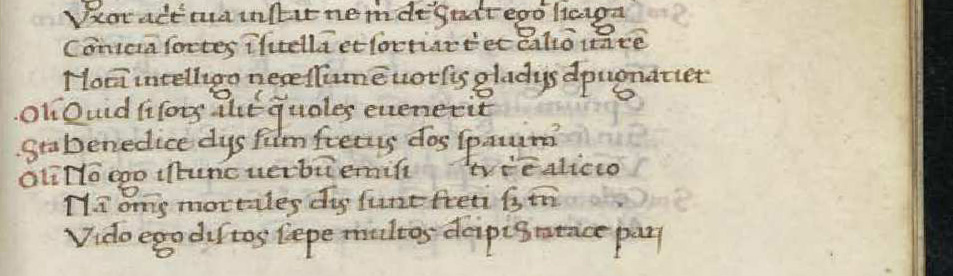 Vxor acr̄ tua instat ne m̄ det Star ego sicaga
Cōnicia sortes ī sitellā et sortiar t' et caliō ita rē
Notā intelligo necessum ē uorsis gladijs dpugnarier
.Oli Quid si sors alit' q̄ uoles euenerit
.Sta Benedice dijs sum fretus dōs spauim'
Oli Nō ego istunc uerbū emisi tv t'ē alicio
Nā om̄s mortales dis sunt freti sꝫ tn̄
Vido ego dis tos sæpe multos dcipi Sta tace parͫ